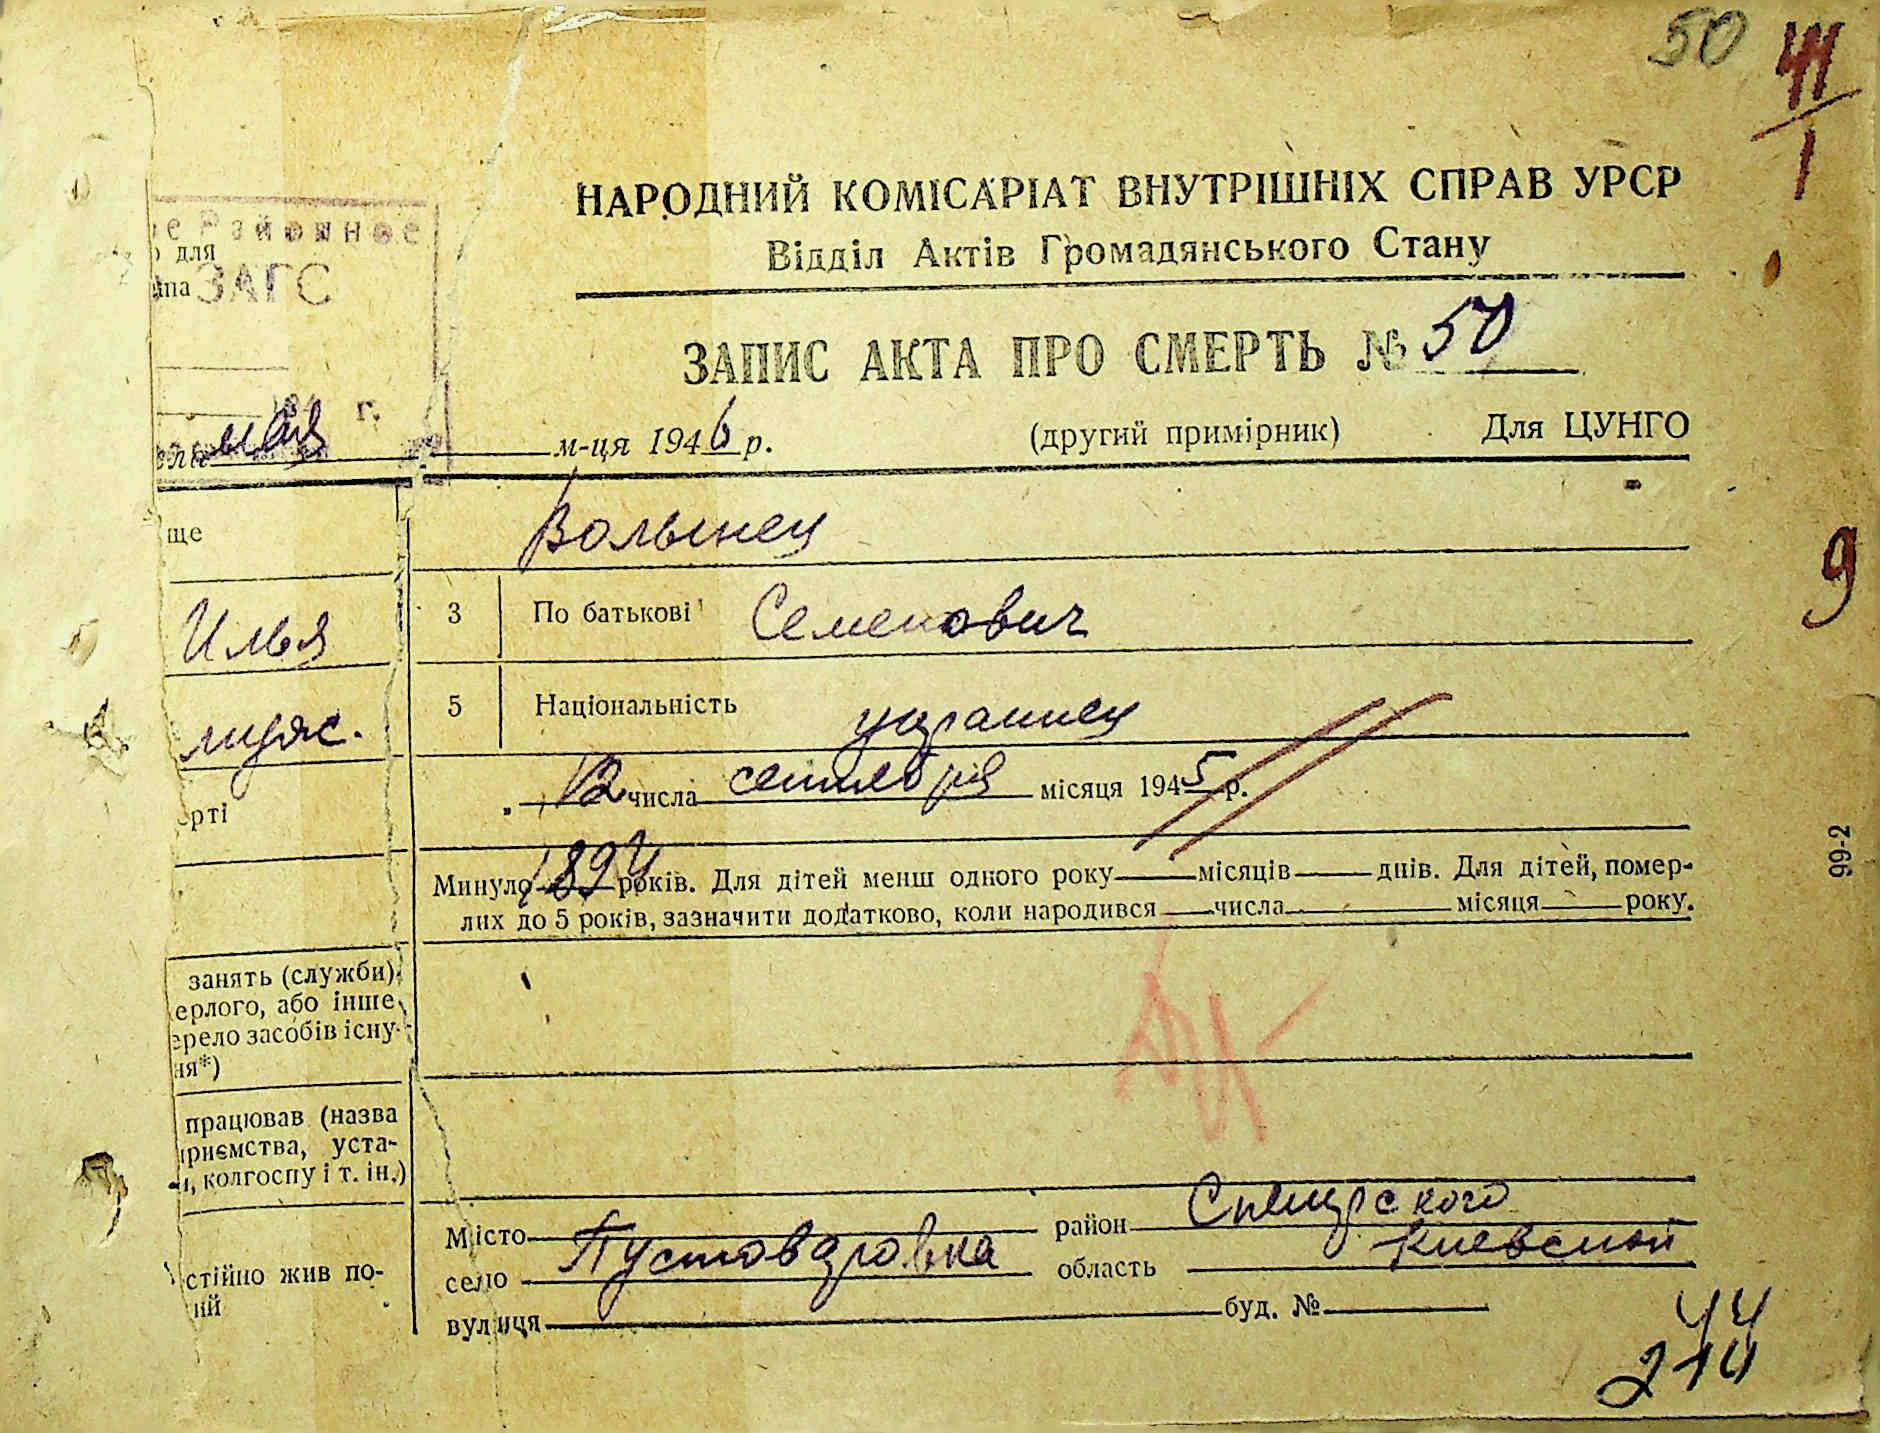 50
НАРОДНИЙ КОМІСАРІАТ ВНУТРІШНІХ СПРАВ УРСР
Районное
о для
ЗАГС
Відділ Актів Громадянського Стану
ЗАПИС АКТА ПРО СМЕРТЬ № 50
г.
мая м-ця 1946 р. (другий примірник) Для ЦУНГО
ще Волынец
9
Илья 3 По батькові Семенович
мужс. 5 Національність украинец
ерті 12 числа сентября місяця 1945 р.
Минуло 1894 років. Для дітей менш одного року місяців днів. Для дітей, помер-
лих до 5 років, зазначити додатково, коли народився числа місяця року.
99-2
занять (служби)
ерлого, або інше
ерело засобів існу-
ня*)
працював (назва
приємства, уста-
и, колгоспу і т. ін.)
стійно жив по-
ний
Місто район Сквирского
село Пустоваровка область Киевской
вулиця буд. №
44
274